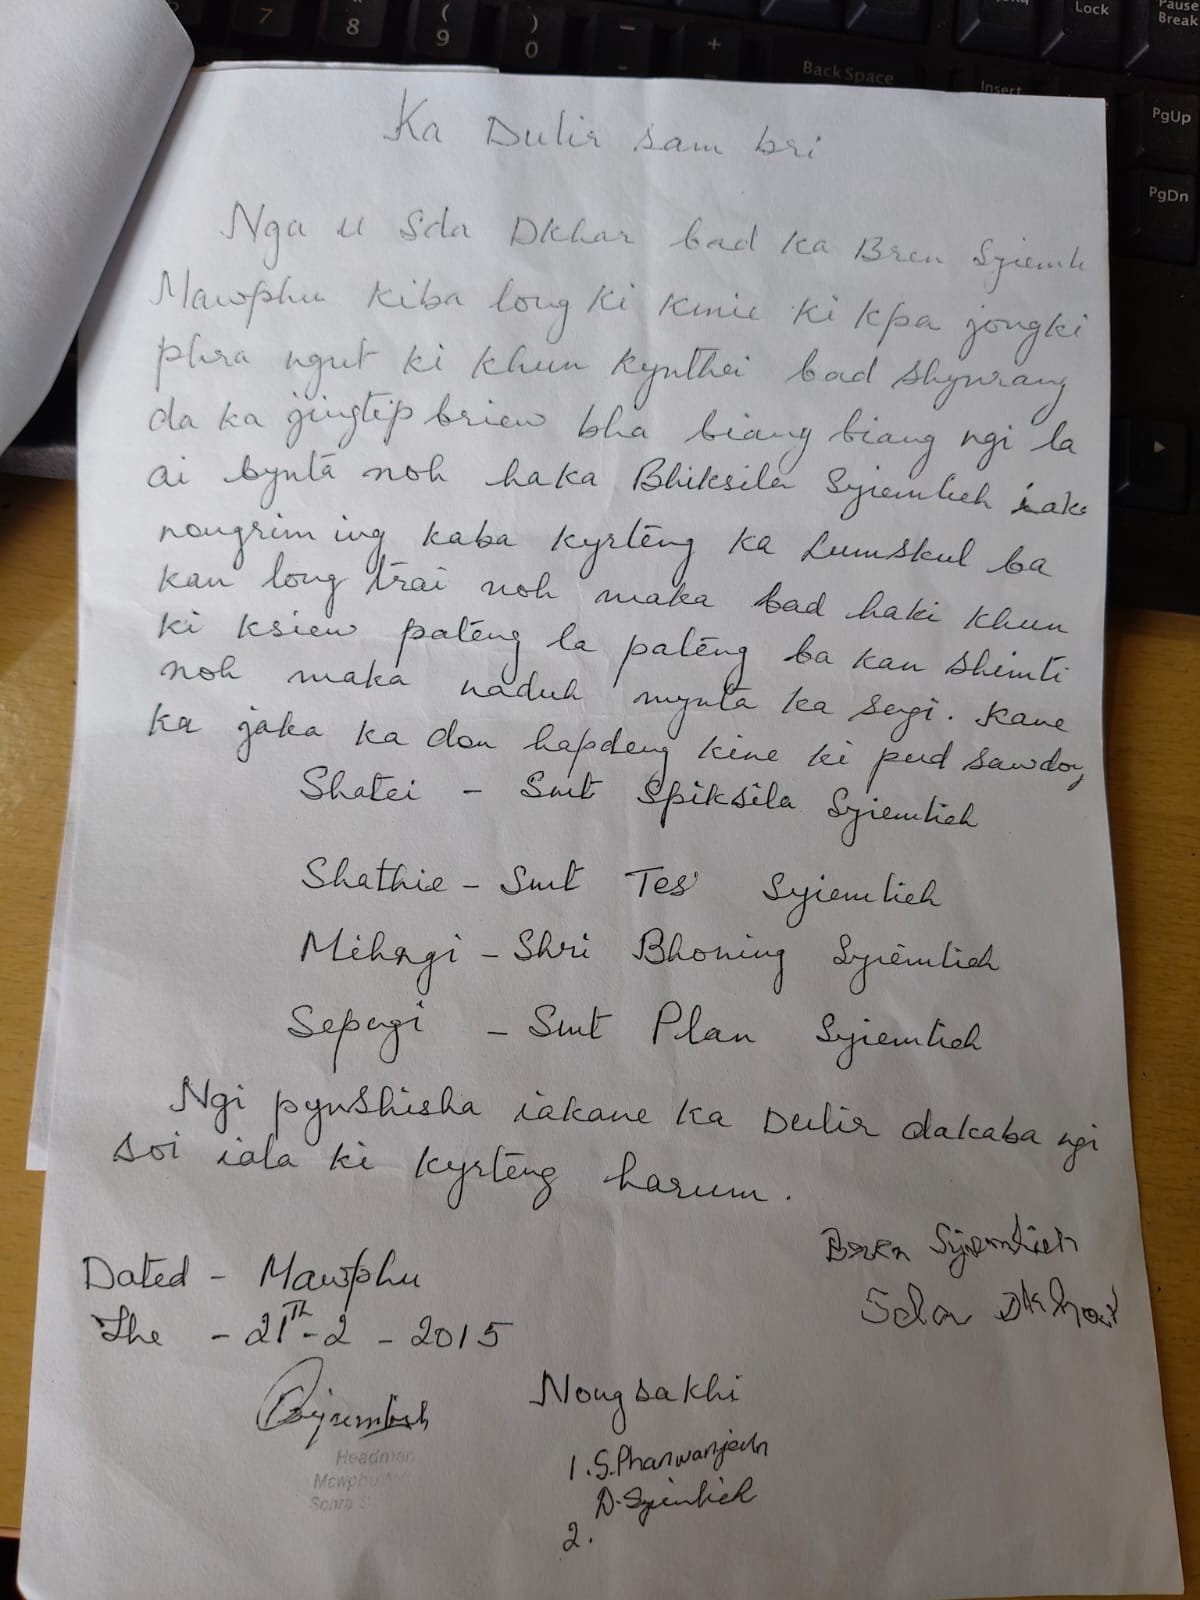 7 8 ( 9 ) 0 - + Back Space Insert Lock Pause Break
PgUp
PgDn
Ka Dulir sam bri
Nga u Sda Dkhar bad ka Bren Syiemli
Mawphu kiba long ki kmie ki kpa jongki
phra ngut ki khun kynthei bad shynrang
da ka jingtip briew bha biang biang ngi la
ai bynta noh haka Bhiksila Syiemlieh iaka
nongrim ing kaba kyrteng ka Lumskul ba
kan long trai noh maka bad haki khun
ki ksiew pateng la pateng ba kan shimti
noh maka naduh mynta ka sngi. Kane
ka jaka ka don hapdeng kine ki pud sawdong
Shatei - Smt Spiksila Syiemlieh
Shathie - Smt Tes Syiemlieh
Mihngi - Shri Bhoning Syiemlieh
Sepngi - Smt Plan Syiemlieh
Ngi pynshisha iakane ka Dulir dakaba ngi
soi iala ki kyrteng harum.
Bren Syiemlieh
Sda Dkhar
Dated - Mawphu
The - 21TH - 2 - 2015
Nongsakhi
Headman
Mawphu
Sohra
1. S. Pharwanjeh
D. Syiemlieh
2.